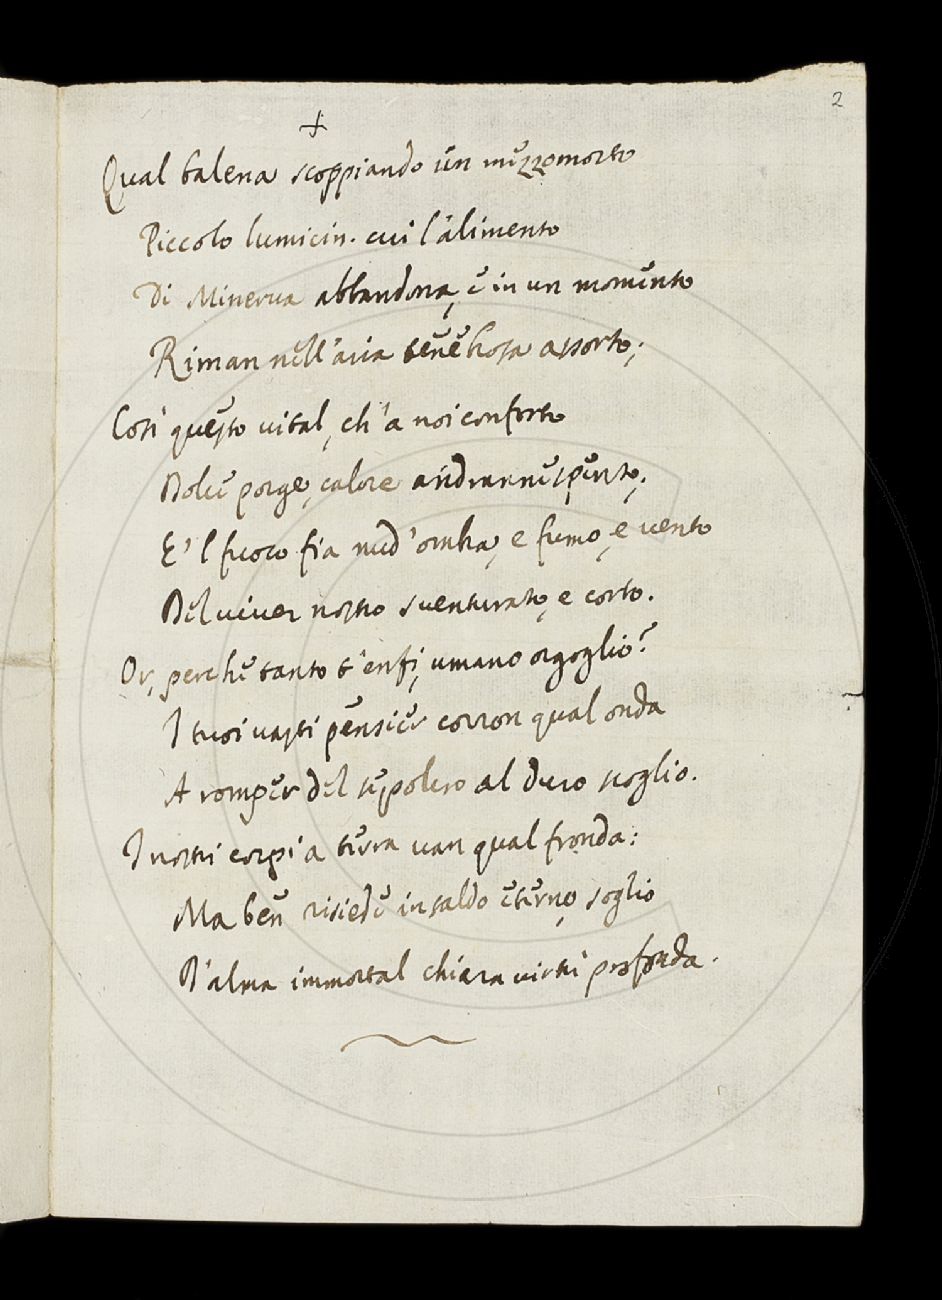 2
Qual balena scoppiando un mezzomorto
Piccolo lumicin. cui l'alimento
Di Minerva abbandona, e in un momento
Riman nell'aria tenebrosa assorto;
Così questo vital, ch'a noi conforto
Dolce porge, calore andranne spento;
E'l fuoco fia nud'ombra, e fumo, e vento
Del viver nostro sventurato, e corto.
Or, perche tanto t'enfi, umano orgoglio?
I tuoi vasti pensier corron qual onda
A romper del sepolcro al duro scoglio.
I nostri corpi a terra van qual fronda:
Ma ben risiede in saldo eterno, soglio
D'alma immortal chiara virtù profonda.